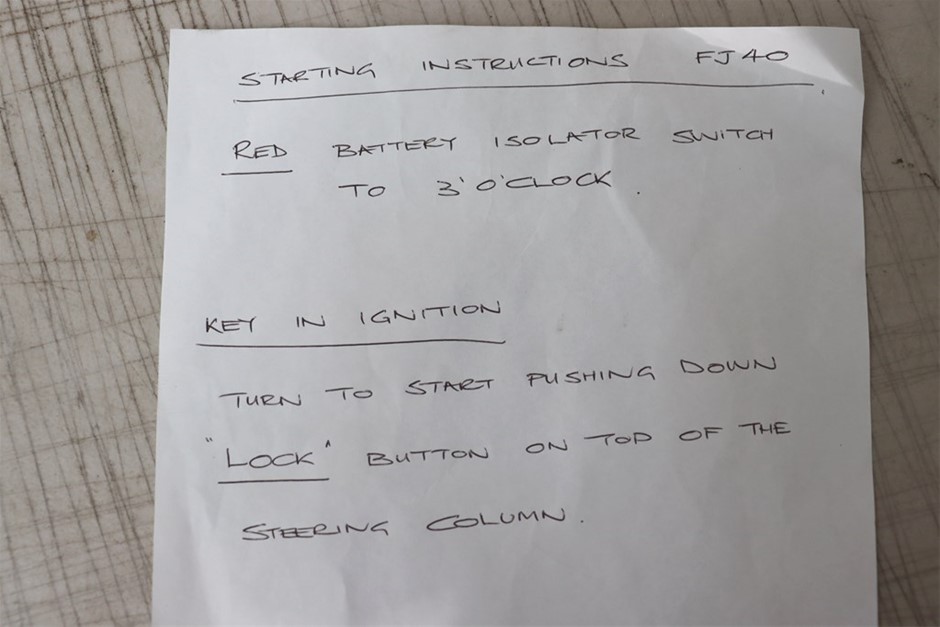 STARTING INSTRUCTIONS FJ40
RED BATTERY ISOLATOR SWITCH
TO 3'O'CLOCK.
KEY IN IGNITION
TURN TO START PUSHING DOWN
"LOCK" BUTTON ON TOP OF THE
STEERING COLUMN.